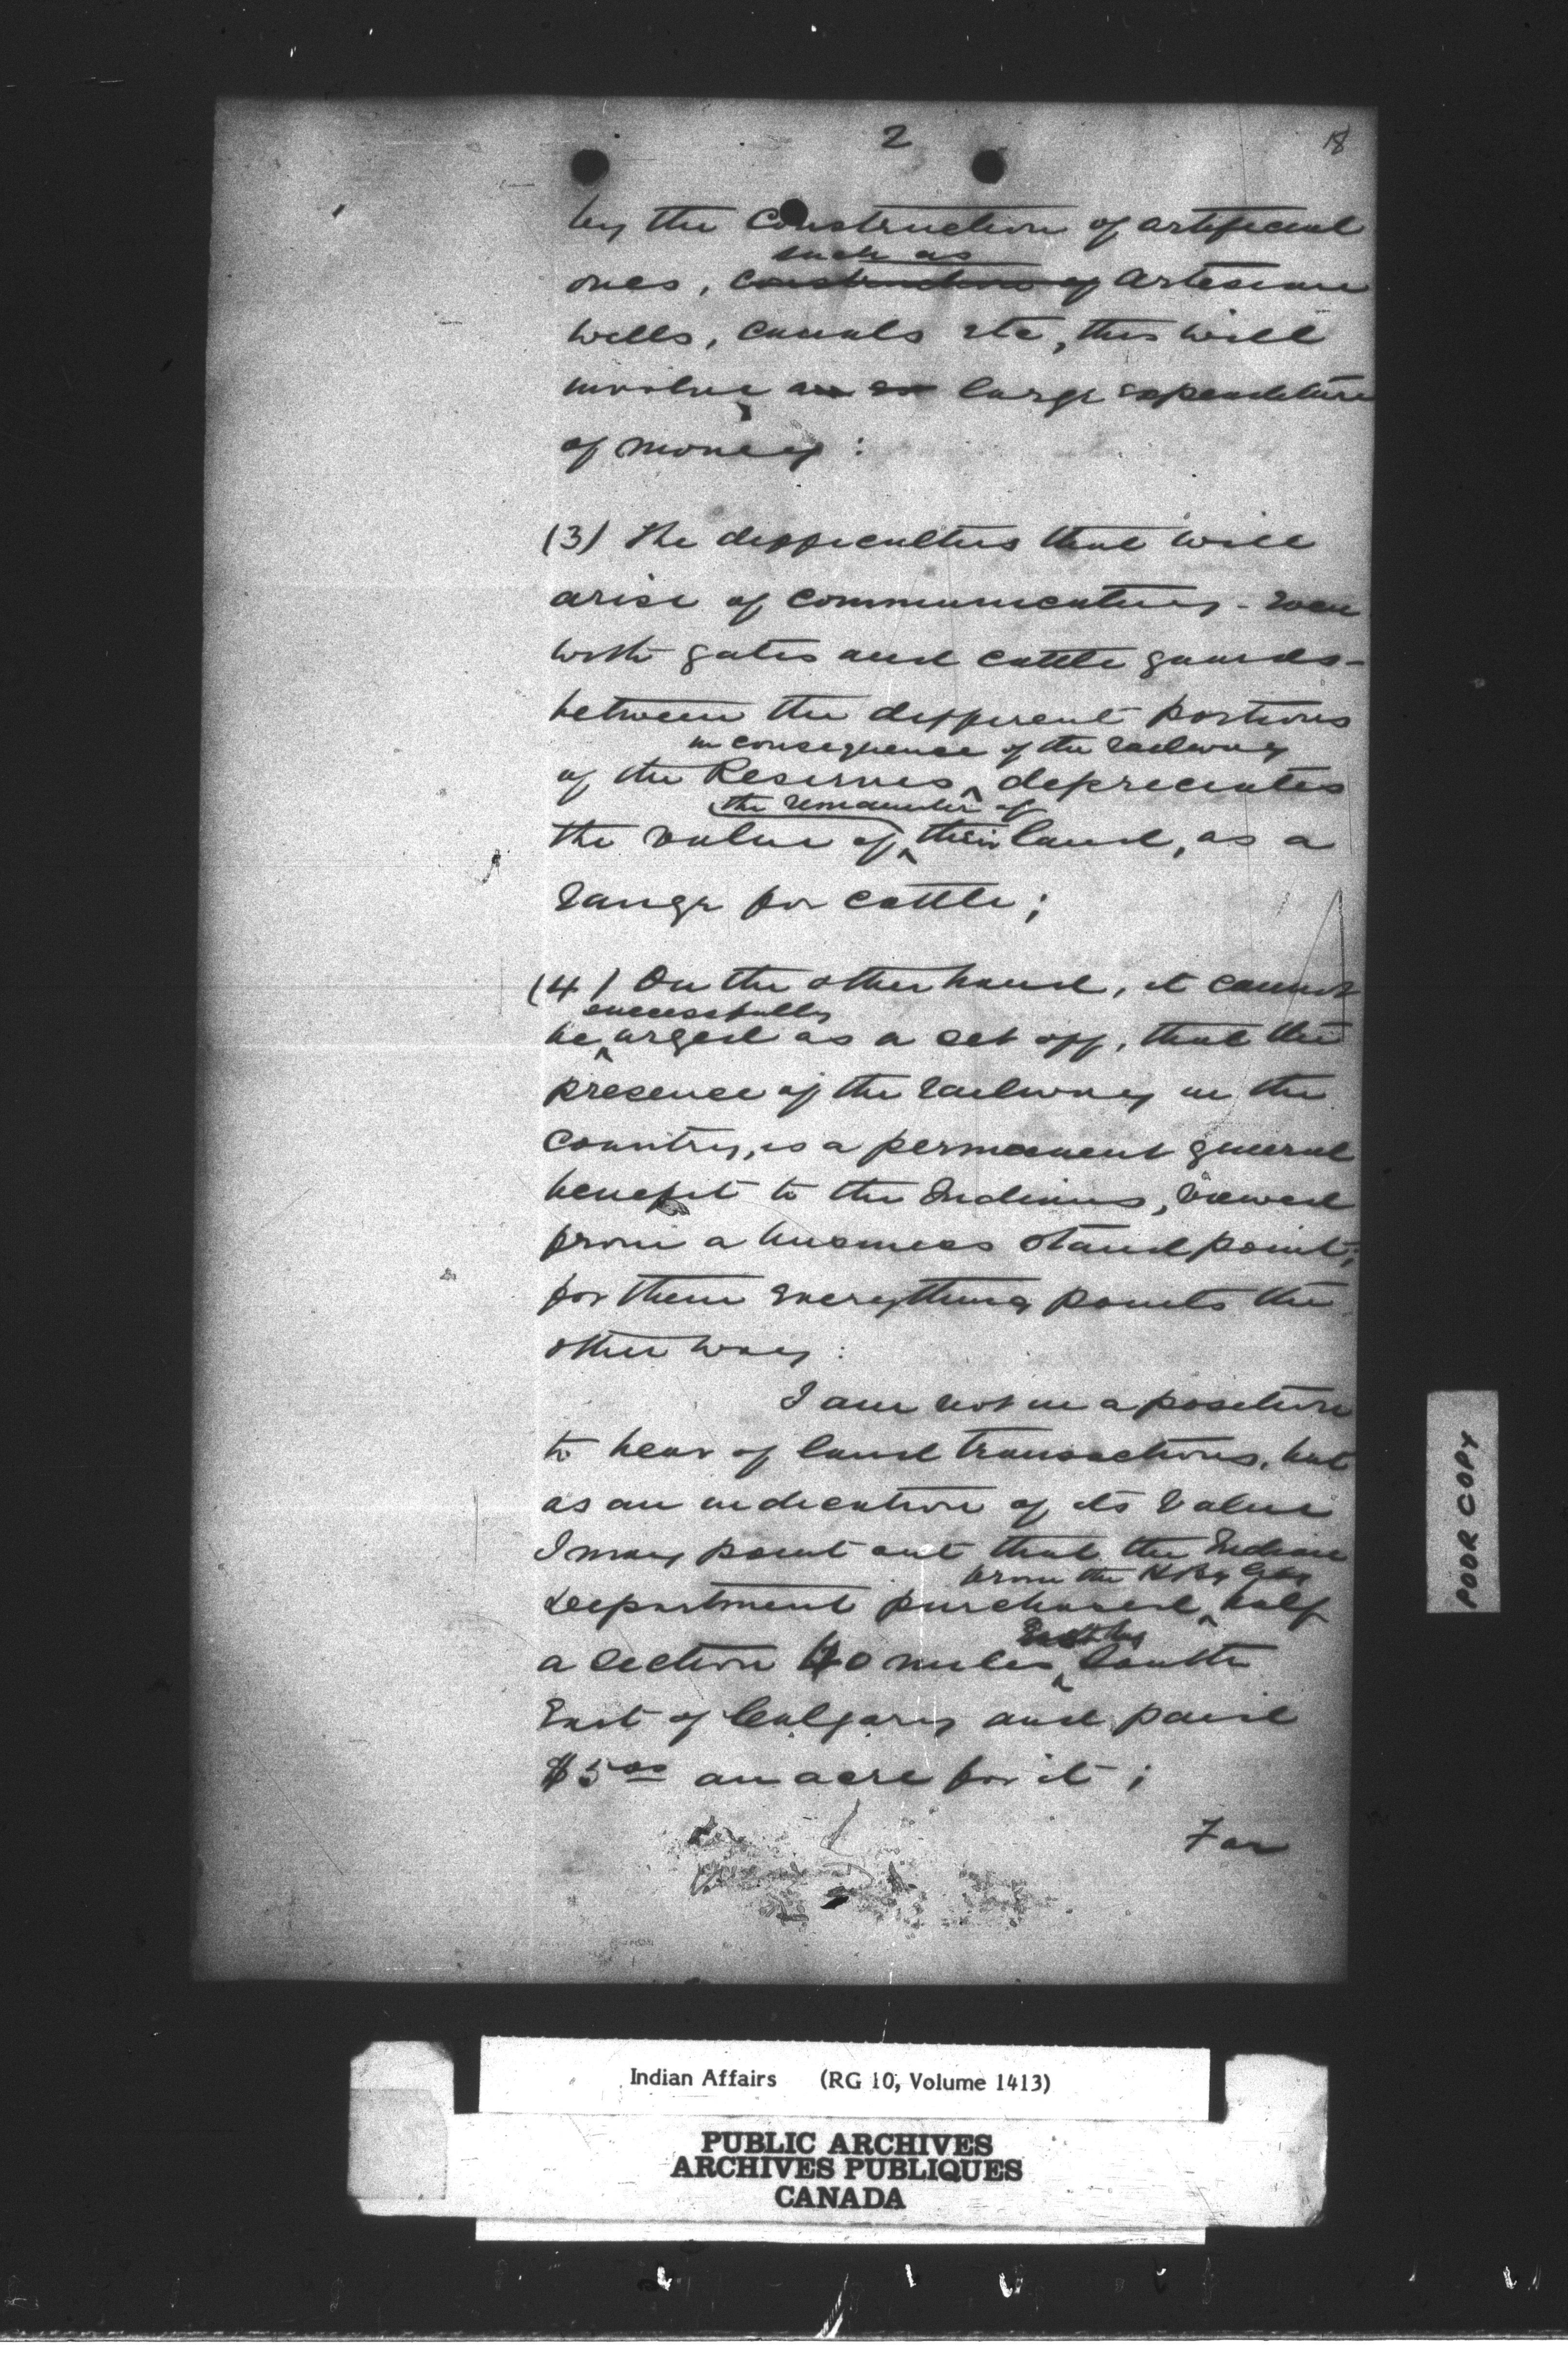 2
18
by the construction of artificial
such as
ones, construction of Artesian
wells, canals etc, this will
involve a large expenditure
of money:
(3) The difficulties that will
arise of communicating - even
with gates and cattle guards -
between the different portions
in consequence of the railway
of the Reserves, depreciates
the remainder of
the value of their land, as a
range for cattle;
(4) On the other hand, it cannot
successfully
be urged as a set off, that the
presence of the railway in the
Country, is a permanent general
benefit to the Indians, viewed
from a business stand point;
for them everything points the
other way:
I am not in a position
to hear of land transactions, but
as an indication of its value
I may point out that the Indian
from the H Bay Coy
Department purchased half
a section 40 miles South
East of Calgary and paid
$5 00 an acre for it;
For
POOR COPY
Indian Affairs (RG 10, Volume 1413)
PUBLIC ARCHIVES
ARCHIVES PUBLIQUES
CANADA